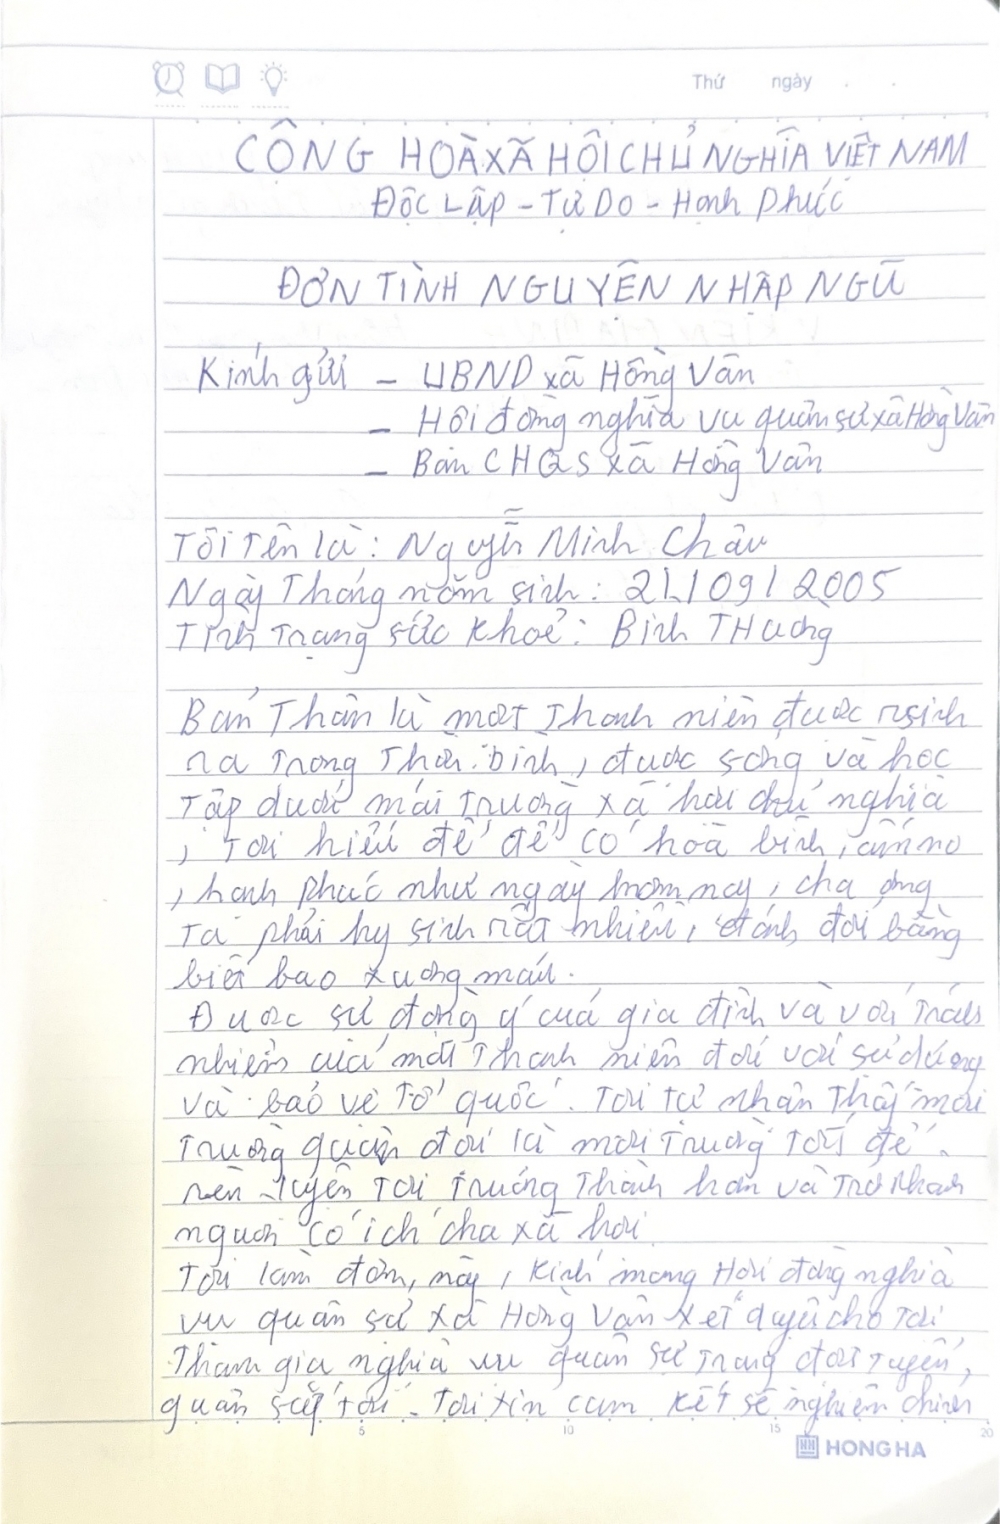 Thứ ngày
CỘNG HOÀ XÃ HỘI CHỦ NGHĨA VIỆT NAM
Độc Lập - Tự Do - Hạnh Phúc
ĐƠN TÌNH NGUYỆN NHẬP NGŨ
Kính gửi - UBND xã Hồng Vân
- Hội đồng nghĩa vụ quân sự xã Hồng Vân
- Ban CHQS xã Hồng Vân
Tôi tên là: Nguyễn Minh Châu
Ngày tháng năm sinh: 21/09/2005
Tình trạng sức khoẻ: Bình Thường
Bản Thân là một Thanh niên được sinh
ra trong thời bình, được sống và học
tập dưới mái trường xã hội chủ nghĩa
, tôi hiểu để để có hoà bình, ấm no
, hạnh phúc như ngày hôm nay, cha ông
ta phải hy sinh rất nhiều, đánh đổi bằng
biết bao xương máu.
Được sự đồng ý của gia đình và với trách
nhiệm của một Thanh niên đối với sự dựng
và bảo vệ tổ quốc. Tôi tự nhận thấy môi
trường quân đội là môi trường tốt để
rèn luyện tôi trưởng thành hơn và trở thành
người có ích cho xã hội.
Tôi làm đơn, này, kính mong Hội đồng nghĩa
vụ quân sự xã Hồng Vân xét duyệt cho tôi
tham gia nghĩa vụ quân sự trong đợt tuyển
quân sắp tới. Tôi xin cam kết sẽ nghiêm chỉnh
5 10 15 20
HONG HA